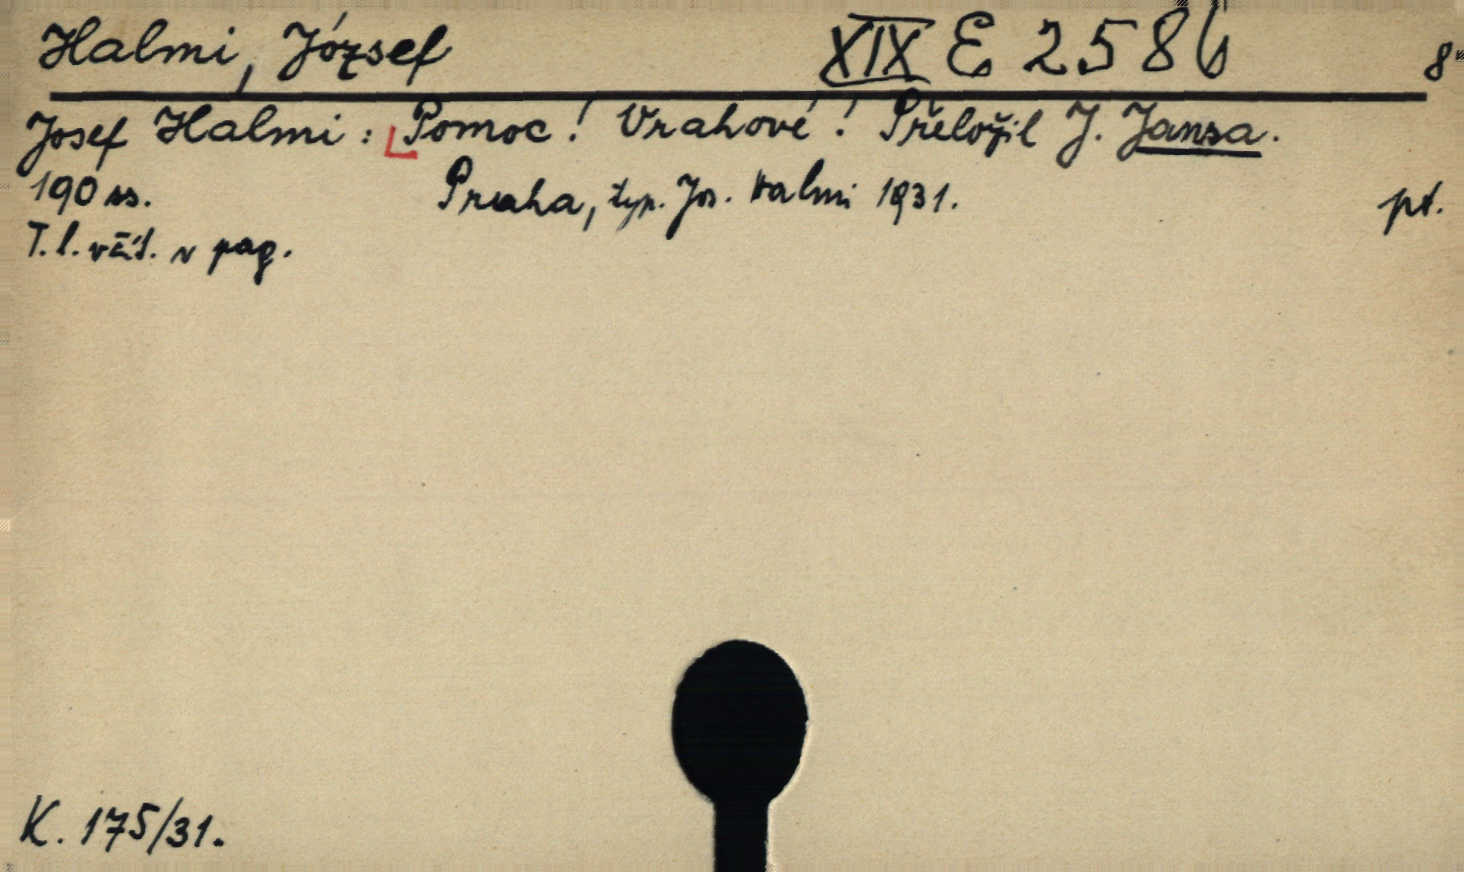 Halmi, József XIX E 2586 8°
Josef Halmi: Pomoc! Vrahové! Přeložil J. Jansa.
190 ss. Praha, typ. Jos. Halmi 1931. pt.
T. l. včít. v pag.
K. 175/31.